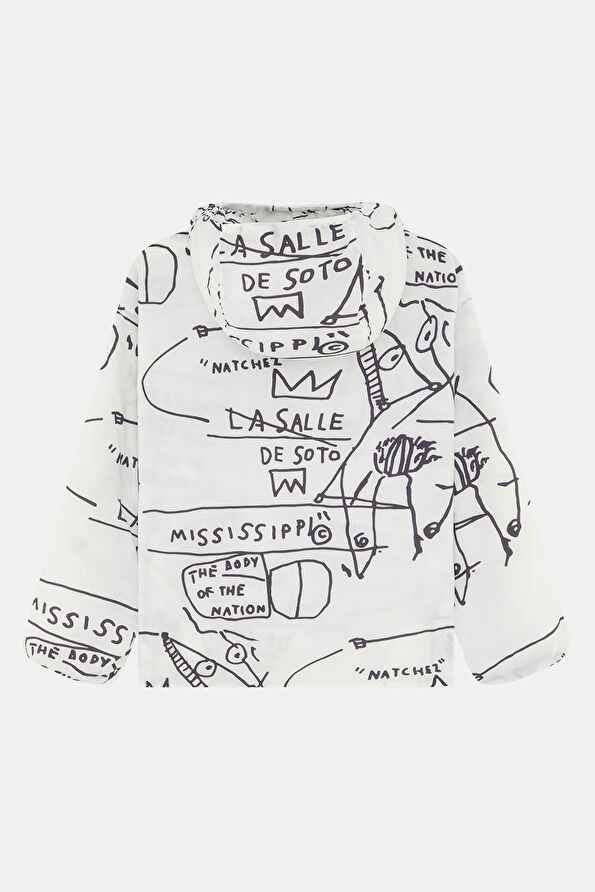 LA SALLE
DE SOTO
SIPPI©
THE
NATION
"NATCHEZ
LA SALLE
DE SOTO
MISSISSIPPI"©
THE BODY
OF THE
NATION
"NAT
MISSISS
THE BODY
"NATCHEZ"